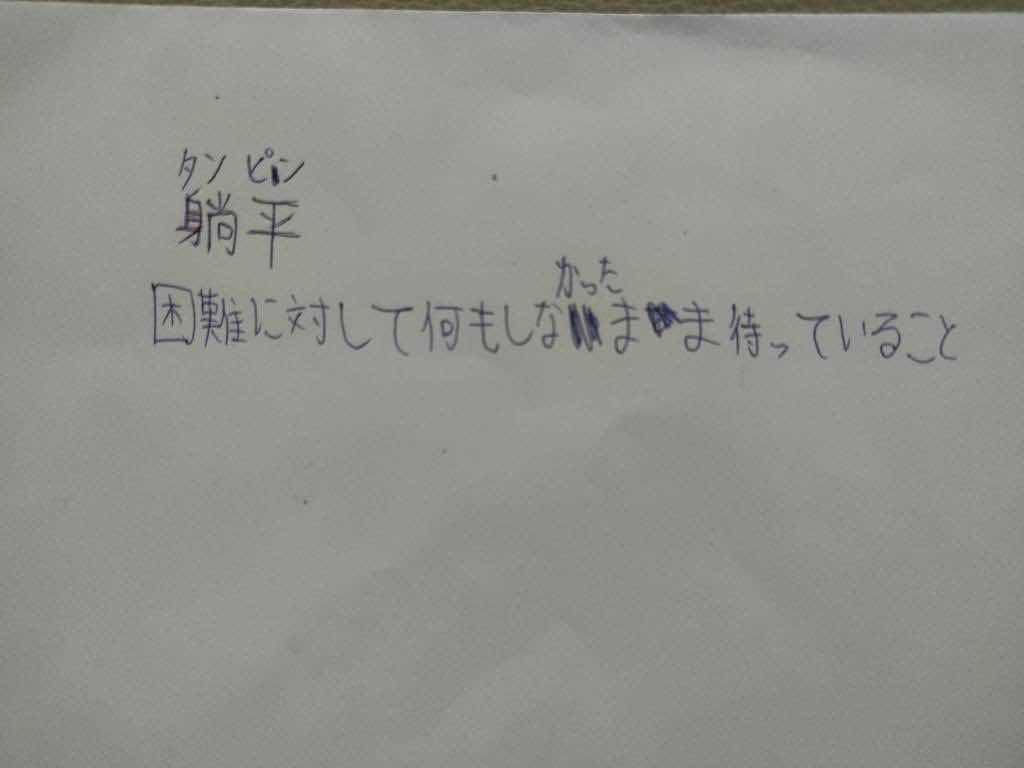 タンピン
躺平
かった
困難に対して何もしなまま待っていること